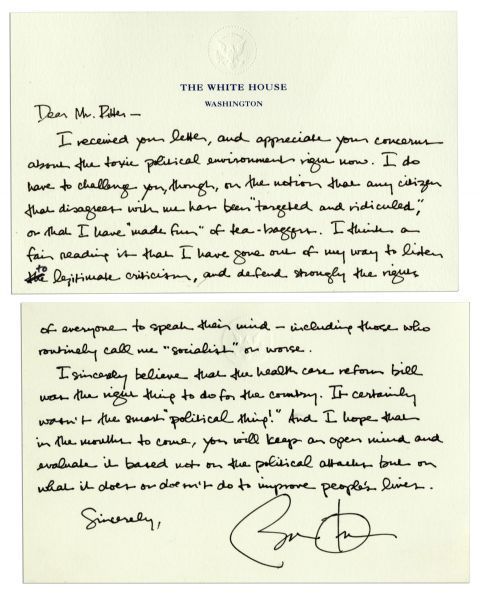 THE WHITE HOUSE
WASHINGTON
Dear Mr. Ritter –
I received your letter, and appreciate your concerns
about the toxic political environment right now. I do
have to challenge you, though, on the notion that any citizen
that disagrees with me has been "targeted and ridiculed",
or that I have "made fun" of tea-baggers. I think a
fair reading is that I have gone out of my way to listen
to legitimate criticism, and defend strongly the rights
of everyone to speak their mind – including those who
routinely call me "socialist" or worse.
I sincerely believe that the health care reform bill
was the right thing to do for the country. It certainly
wasn't the smart "political thing!" And I hope that
in the months to come, you will keep an open mind and
evaluate it based not on the political attacks but on
what it does or doesn't do to improve people's lives.
Sincerely,